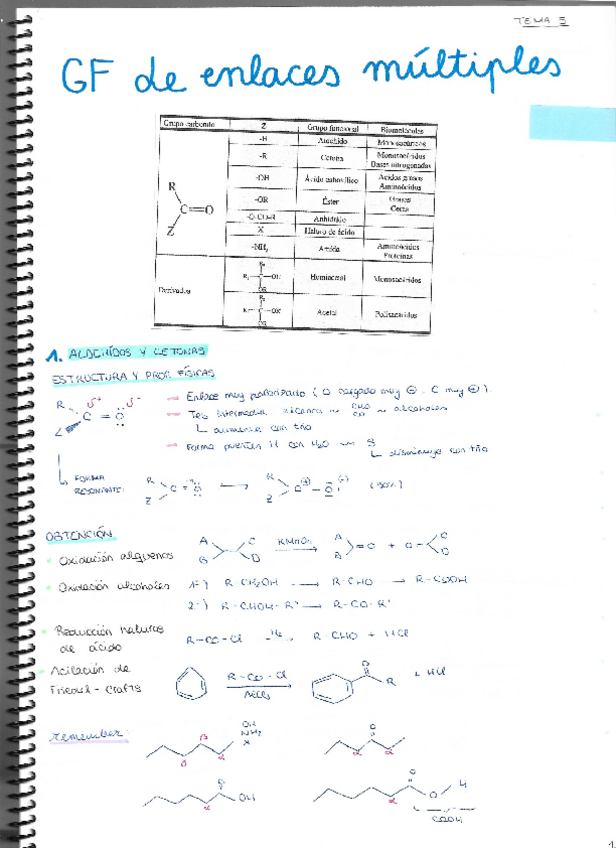 TEMA 5
GF de enlaces múltiples
Grupo carbonilo Z Grupo funcional Biomoléculas
-H Aldehído Monosacáridos
-R Cetona Monosacáridos
Bases nitrogenadas
-OH Ácido carboxílico Ácidos grasos
Aminoácidos
-OR Éster Grasas
Ceras
-O-CO-R Anhídrido
X Haluro de ácido
-NH₂ Amida Aminoácidos
Proteínas
R
C=O
Z
Derivados
Hemiacetal Monosacáridos
Acetal Polisacáridos
1. ALDEHÍDOS Y CETONAS
ESTRUCTURA Y PROP. FÍSICAS
R δ+ C=O δ-
→ Enlace muy polarizado (O cargado muy ⊖, C muy ⊕).
→ Teb intermedia alcanos ~ CHO CO ~ alcoholes
↳ aumenta con tño
→ Forma puentes H con H₂O → S
↳ disminuye con tño
↳ FORMA
RESONANTE:
R C=O Z → R C-O Z
OBTENCIÓN
• Oxidación alquenos A B C D KMnO₄ → A B =O + O= C D
• Oxidación alcoholes 1º) R-CH₂OH → R-CHO → R-COOH
2º) R-CHOH-R' → R-CO-R'
• Reducción haluros
de ácido
R-CO-Cl H₂→ R-CHO + HCl
• Acilación de
Friedel-Crafts
R-CO-Cl
AlCl₃
O R + HCl
remember:
OH
NH₂
X
β β α
O α α
O OH α
O O H α
COOH
1